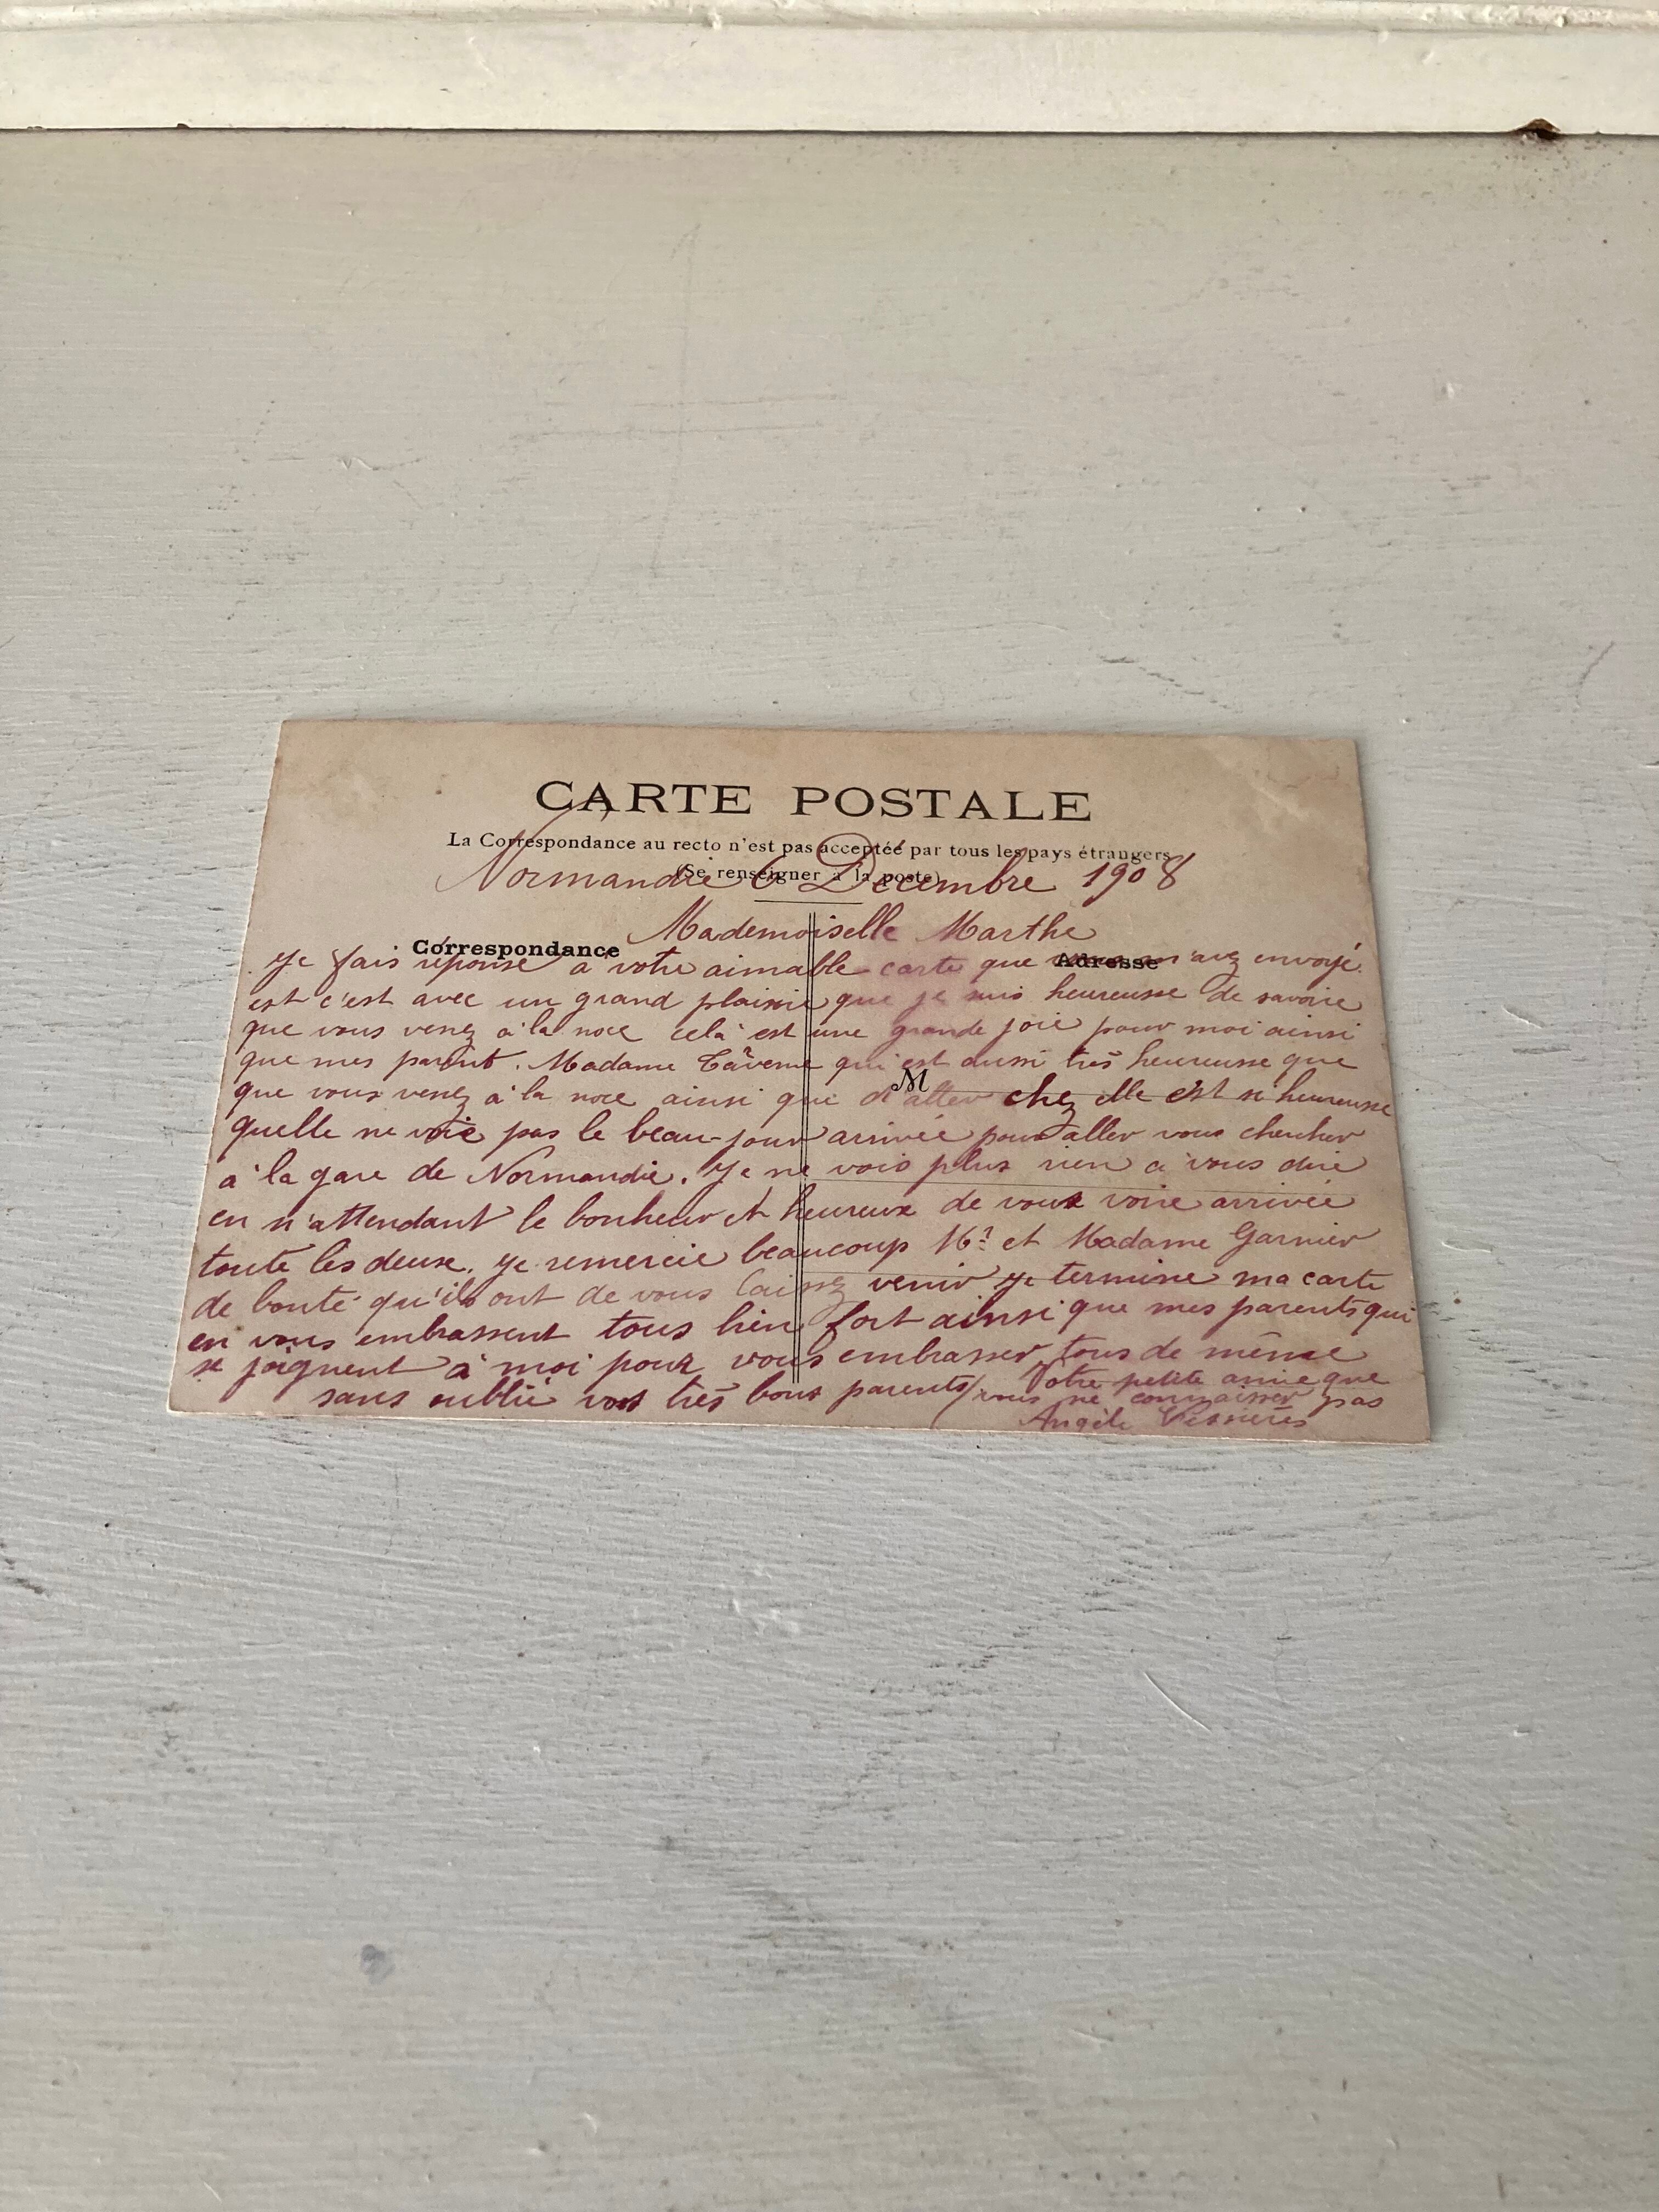 CARTE POSTALE
La Correspondance au recto n'est pas acceptée par tous les pays étrangers
(Se renseigner à la poste)
Normandie 6 Décembre 1908
Mademoiselle Marthe
Correspondance
Adresse
Je fais réponse a votre aimable carte que m'avez envoyé.
est c'est avec un grand plaisir que je suis heureusse de savoire
que vous venez à la noce celà est une grande joie pour moi ainsi
que mes parent. Madame qui est aussi très heureusse que
M
que vous venez à la noce ainsi que d'aller chez elle est si heureusse
quelle ne voie pas le beau-jour arrivée pour aller vous chercher
à la gare de Normandie. Je ne vois plus rien a vous dire
en n'attendant le bonheur et heureux de vous voire arrivée
toute les deux. Je remercie beaucoup Mr et Madame Garnier
de bonté qu'ils ont de vous laissez venir Je termine ma carte
en vous embrassent tous bien fort ainsi que mes parents qui
se joignent à moi pour vous embrasser tous de même
sans oublié vos très bons parents
Votre petite amie que
vous ne connaisser pas
Angèle